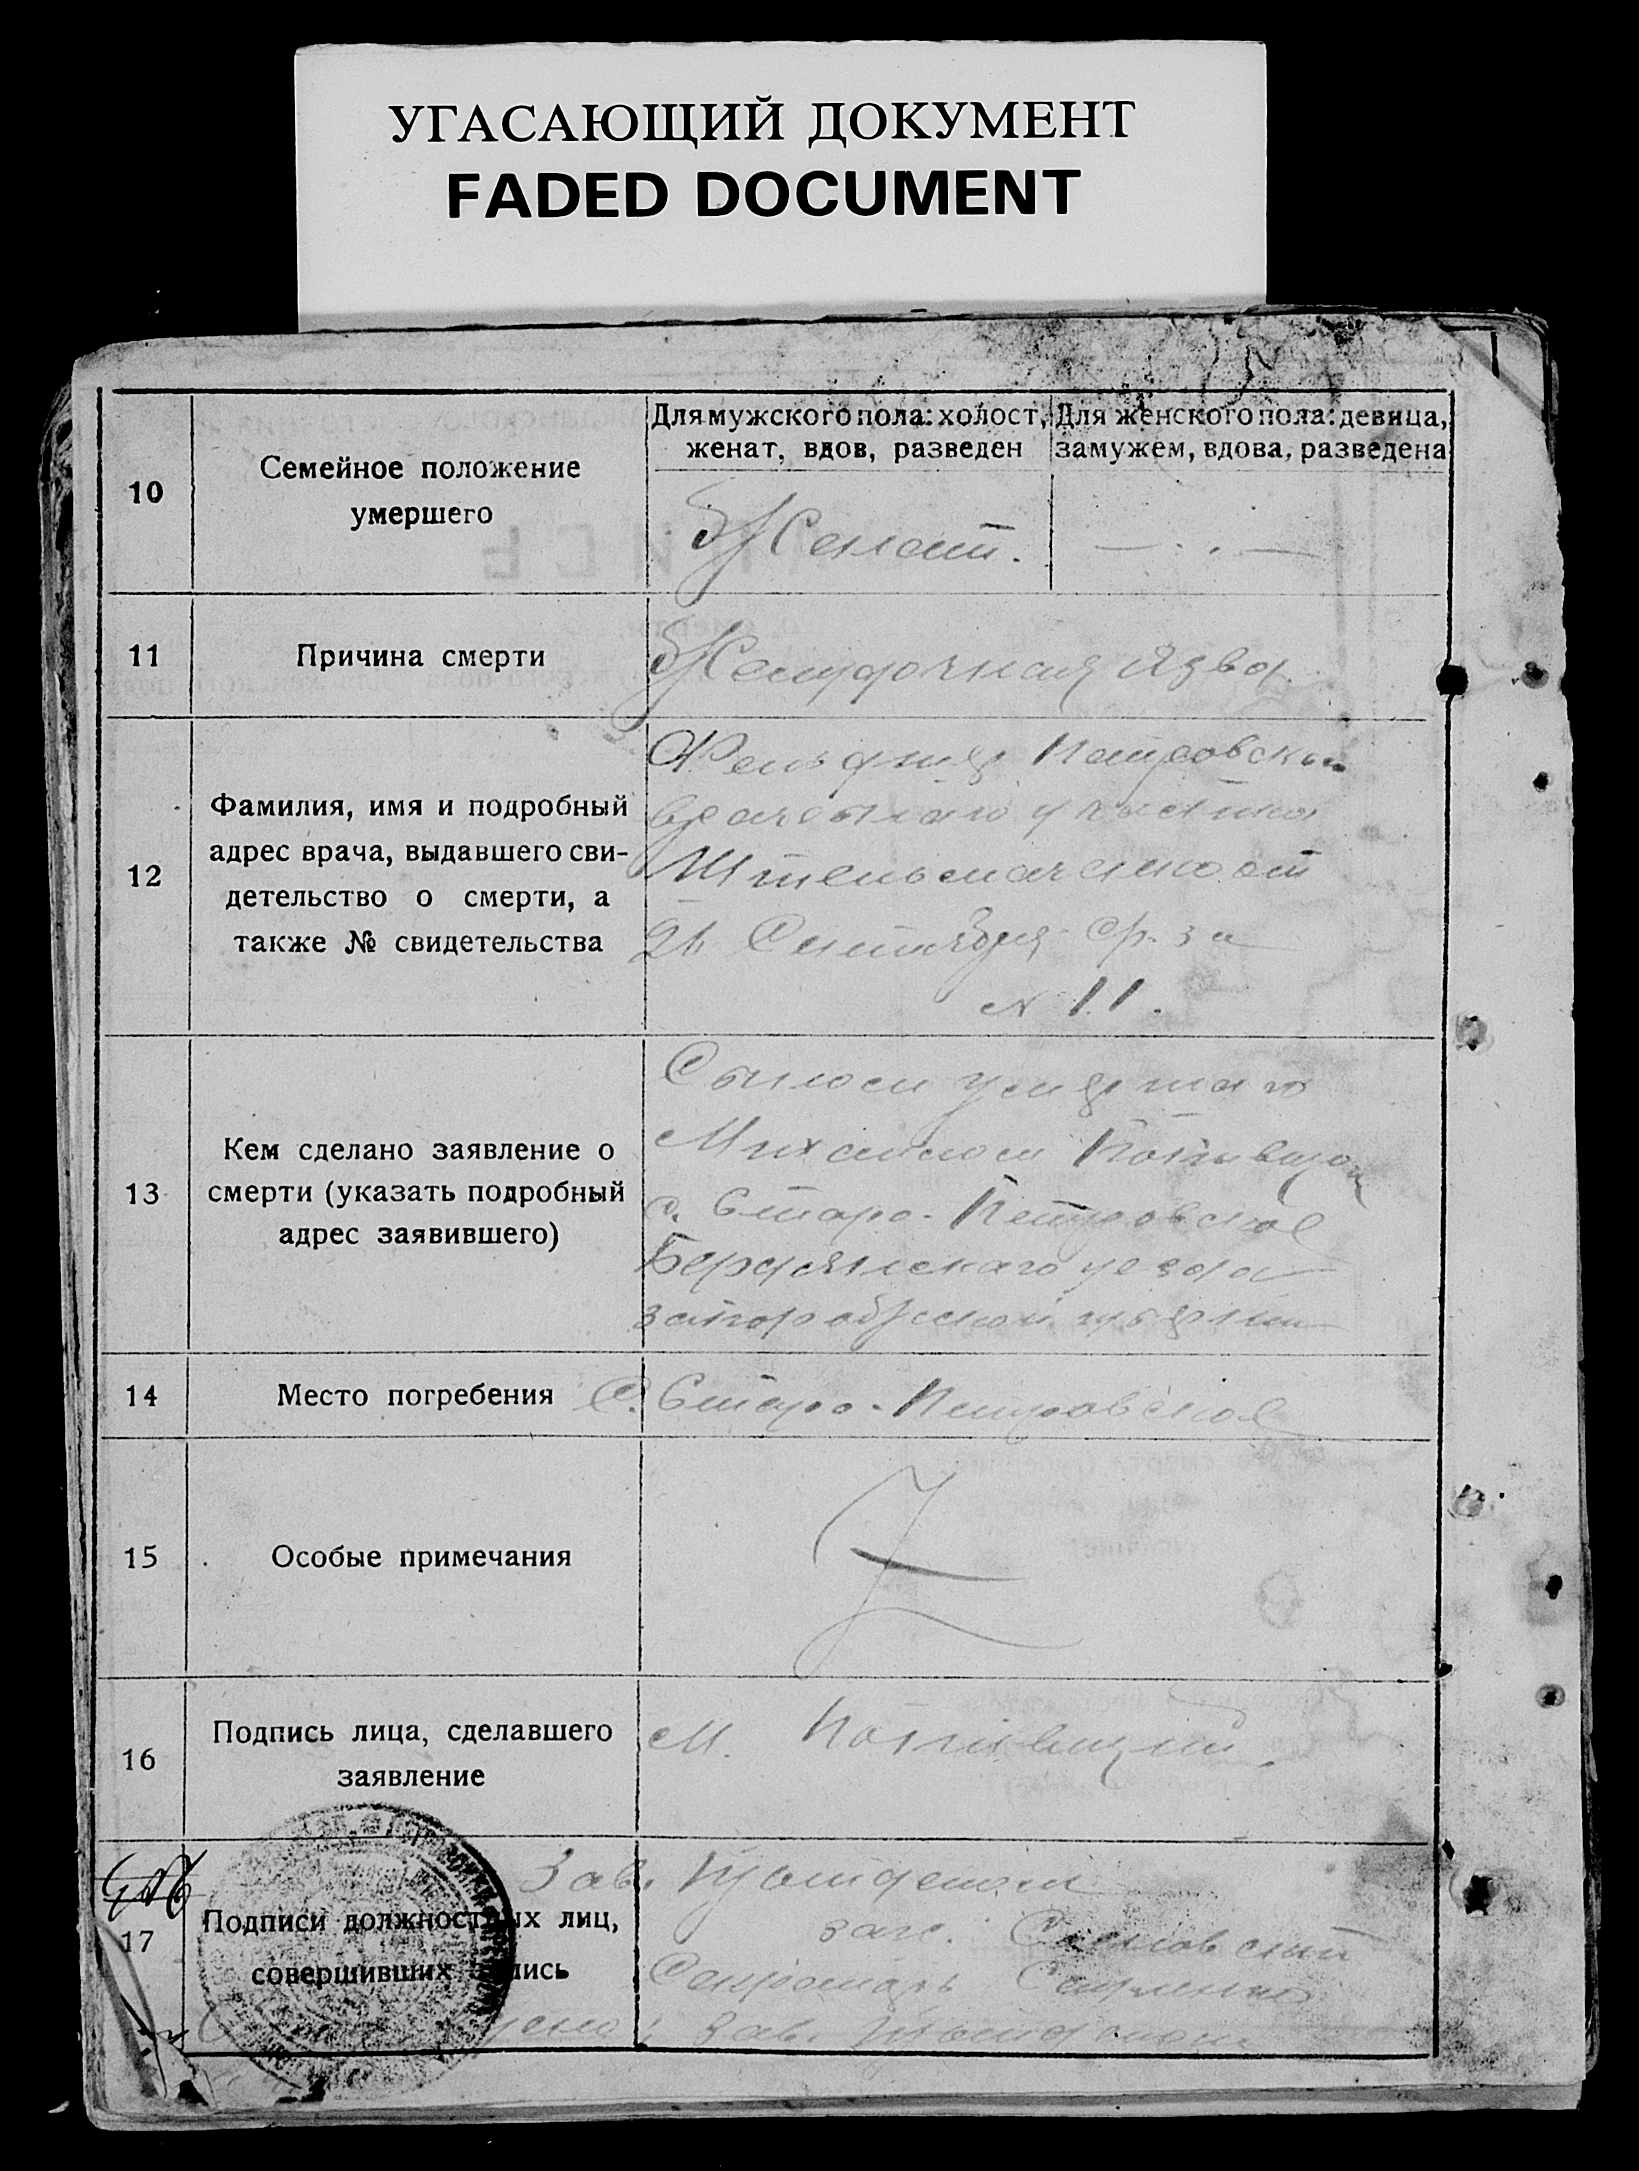 УГАСАЮЩИЙ ДОКУМЕНТ
FADED DOCUMENT
10
Семейное положение
умершего
Для мужского пола: холост,
женат, вдов, разведен
Для женского пола: девица,
замужем, вдова, разведена
Женат.
11
Причина смерти
Желудочная язва.
12
Фамилия, имя и подробный
адрес врача, выдавшего сви-
детельство о смерти, а
также № свидетельства
Петровского
врачебнаго участка
от
21 Сентября с/г. за
№ 11.
13
Кем сделано заявление о
смерти (указать подробный
адрес заявившего)
Сыном умершаго
Михаилом
с. Старо-Петровское
Бердянскаго уезда
запорожской губернии
14
Место погребения
С. Старо-Петровское
15
Особые примечания
16
Подпись лица, сделавшего
заявление
М.
17
Подписи должностных лиц,
совершивших запись
Зав.
Секретарь
Зав.